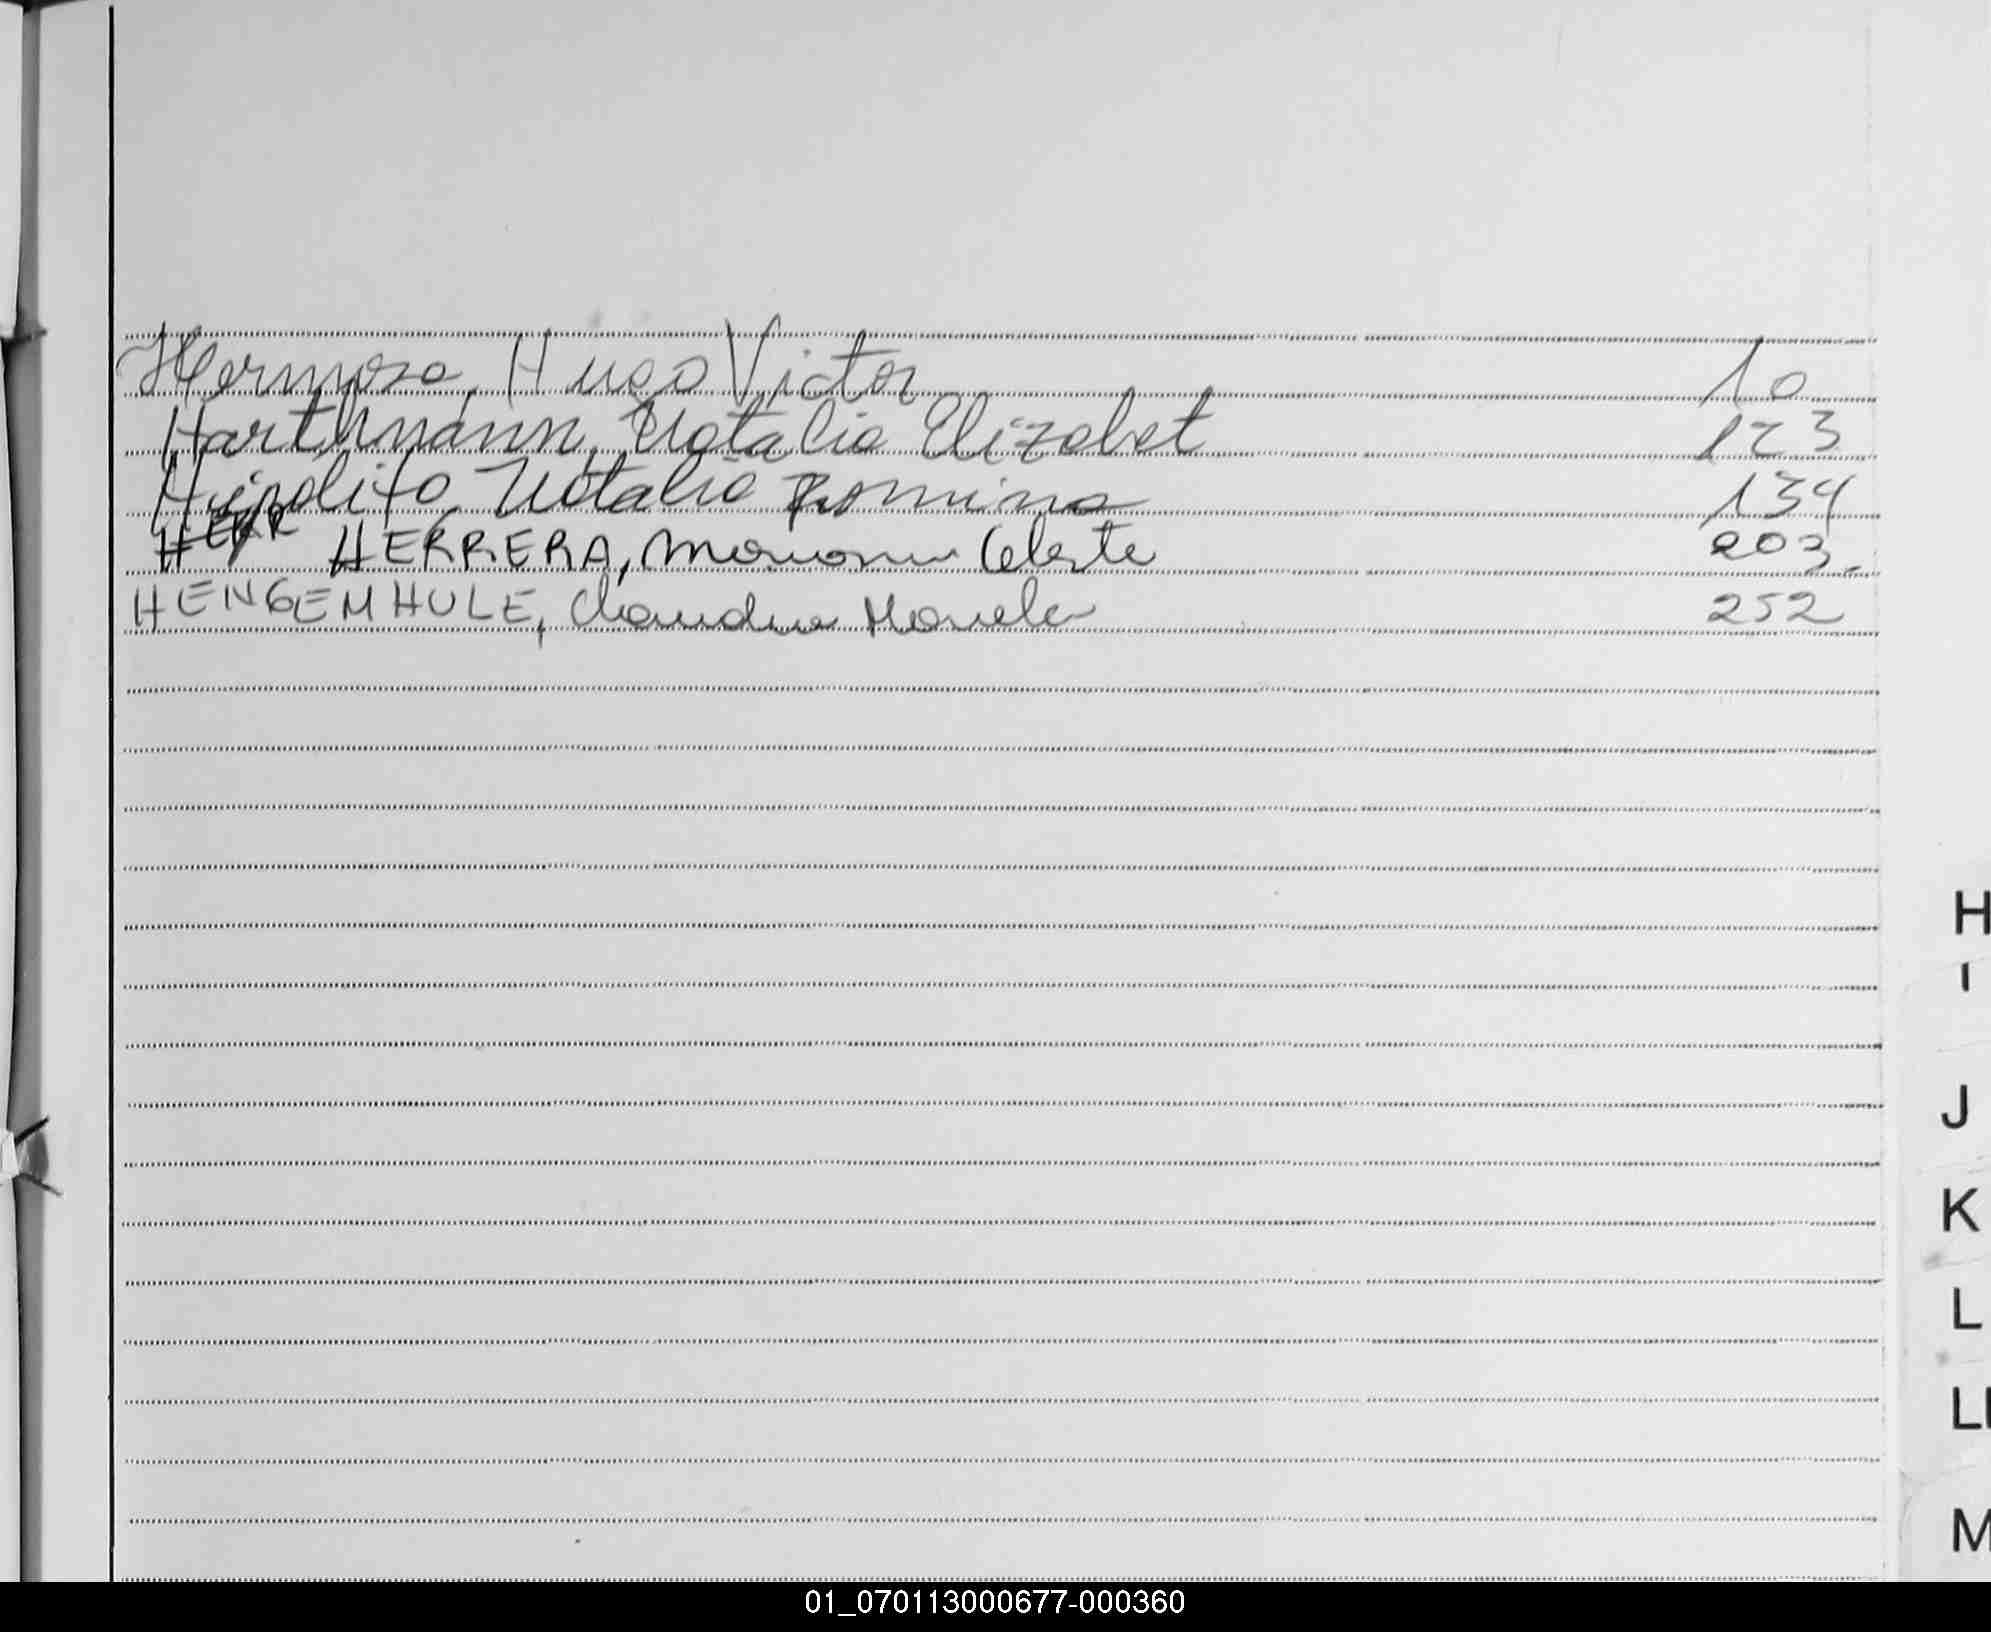 Hermoso, Hugo Victor 10
Hartmánn, Natalia Elizabet 123
Hipólito Natalia Romina 134
HERR HERRERA, Mariana Celeste 203.
HENGEMHULE, Claudia Mariela 252
H
I
J
K
L
LL
M
01_070113000677-000360